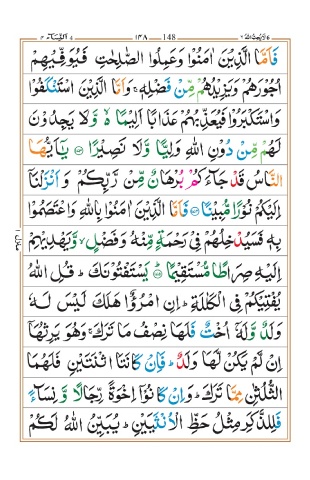 ١٣٨ 148
فَاَمَّا الَّذِيْنَ اٰمَنُوْا وَعَمِلُوا الصّٰلِحٰتِ فَيُوَفِّيْهِمْ
اُجُوْرَهُمْ وَيَزِيْدُهُمْ مِّنْ فَضْلِهٖ ۚ وَاَمَّا الَّذِيْنَ اسْتَنْكَفُوْا
وَاسْتَكْبَرُوْا فَيُعَذِّبُهُمْ عَذَابًا اَلِيْمًا ەۙ وَّلَا يَجِدُوْنَ
لَهُمْ مِّنْ دُوْنِ اللّٰهِ وَلِيًّا وَّلَا نَصِيْرًا ۝ يٰٓاَيُّهَا
النَّاسُ قَدْ جَآءَكُمْ بُرْهَانٌ مِّنْ رَّبِّكُمْ وَاَنْزَلْنَآ
اِلَيْكُمْ نُوْرًا مُّبِيْنًا ۝ فَاَمَّا الَّذِيْنَ اٰمَنُوْا بِاللّٰهِ وَاعْتَصَمُوْا
بِهٖ فَسَيُدْخِلُهُمْ فِيْ رَحْمَةٍ مِّنْهُ وَفَضْلٍ ۙ وَّيَهْدِيْهِمْ
اِلَيْهِ صِرَاطًا مُّسْتَقِيْمًا ۝ يَسْتَفْتُوْنَكَ ؕ قُلِ اللّٰهُ
يُفْتِيْكُمْ فِي الْكَلٰلَةِ ؕ اِنِ امْرُؤٌا هَلَكَ لَيْسَ لَهٗ
وَلَدٌ وَّلَهٗٓ اُخْتٌ فَلَهَا نِصْفُ مَا تَرَكَ ۚ وَهُوَ يَرِثُهَآ
اِنْ لَّمْ يَكُنْ لَّهَا وَلَدٌ ؕ فَاِنْ كَانَتَا اثْنَتَيْنِ فَلَهُمَا
الثُّلُثٰنِ مِمَّا تَرَكَ ؕ وَاِنْ كَانُوْٓا اِخْوَةً رِّجَالًا وَّنِسَآءً
فَلِلذَّكَرِ مِثْلُ حَظِّ الْاُنْثَيَيْنِ ؕ يُبَيِّنُ اللّٰهُ لَكُمْ